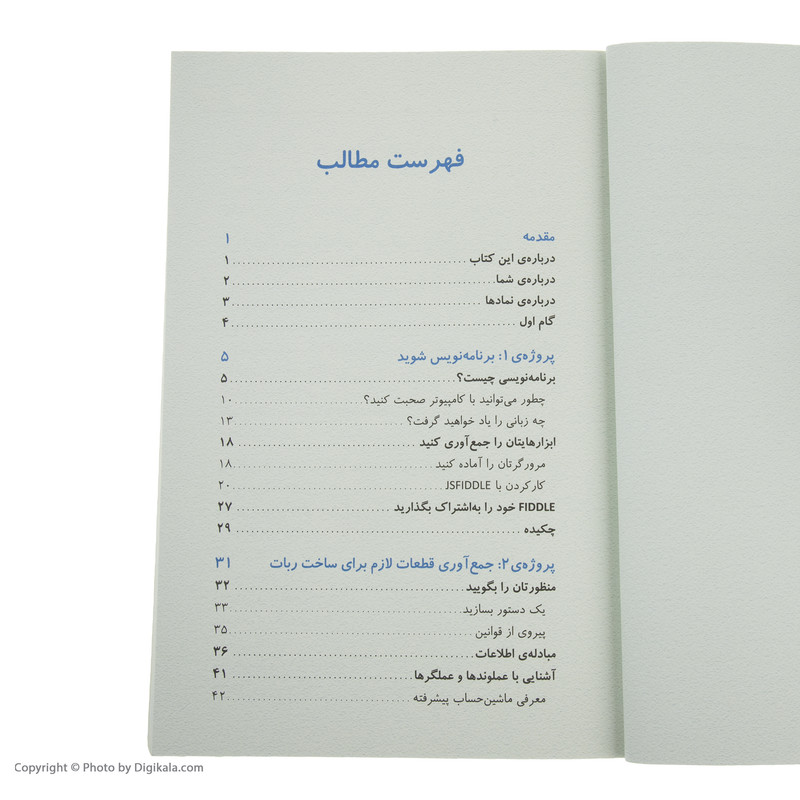 فهرست مطالب
مقدمه ۱
درباره‌ی این کتاب ........ ۱
درباره‌ی شما ........ ۲
درباره‌ی نمادها ........ ۳
گام اول ........ ۴
پروژه‌ی ۱: برنامه‌نویس شوید ۵
برنامه‌نویسی چیست؟ ........ ۵
چطور می‌توانید با کامپیوتر صحبت کنید؟ ........ ۱۰
چه زبانی را یاد خواهید گرفت؟ ........ ۱۳
ابزارهایتان را جمع‌آوری کنید ........ ۱۸
مرورگرتان را آماده کنید ........ ۱۸
کارکردن با JSFIDDLE ........ ۲۰
FIDDLE خود را به‌اشتراک بگذارید ........ ۲۷
چکیده ........ ۲۹
پروژه‌ی ۲: جمع‌آوری قطعات لازم برای ساخت ربات ۳۱
منظورتان را بگویید ........ ۳۲
یک دستور بسازید ........ ۳۳
پیروی از قوانین ........ ۳۵
مبادله‌ی اطلاعات ........ ۳۶
آشنایی با عملوندها و عملگرها ........ ۴۱
معرفی ماشین‌حساب پیشرفته ........ ۴۲
Copyright © Photo by Digikala.com